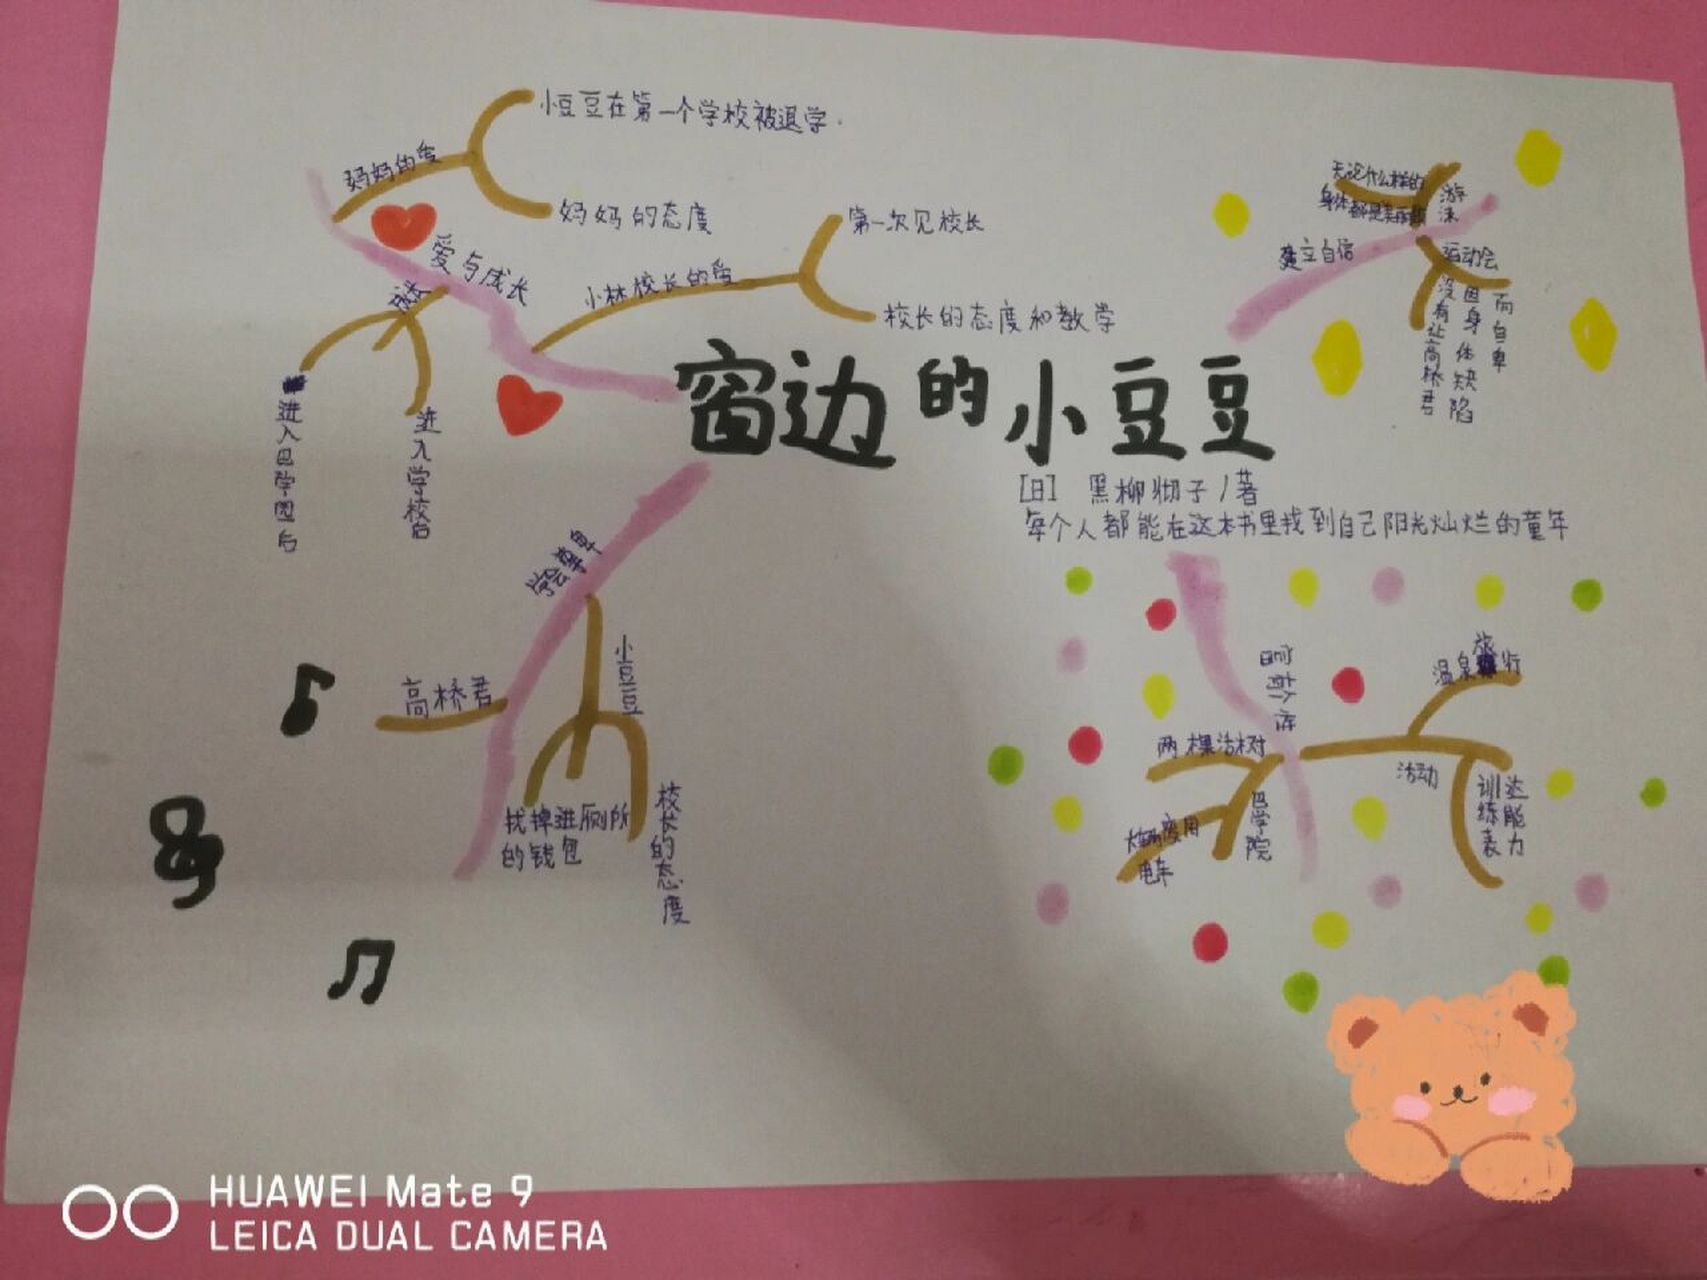 小豆豆在第一个学校被退学.
妈妈的爱
妈妈的态度
爱与成长
第一次见校长
小林校长的爱
校长的态度和教学
成长
进入巴学园后
进入学校后
窗边的小豆豆
[日] 黑柳彻子/著
每个人都能在这本书里找到自己阳光灿烂的童年
无论什么样的
身体都是美丽的
游泳
建立自信
运动会
没有让高桥君
因身体缺陷
而自卑
学会尊重
高桥君
小豆豆
找掉进厕所
的钱包
校长的态度
两棵活树
电车
巴学院
活动
温泉旅行
训练表
达能力
HUAWEI Mate 9
LEICA DUAL CAMERA